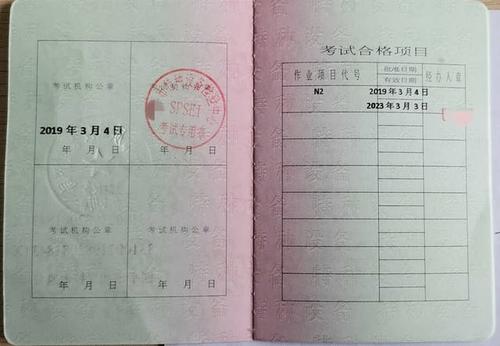 考试机构公章
2019 年 3 月 4 日
年 月 日
SPSEI
考试专用章
年 月 日
考试机构公章
年 月 日
考试机构公章
年 月 日
考试合格项目
作业项目代号 批准日期 经办人章
有效日期
N2 2019 年 3 月 4 日
2023 年 3 月 3 日